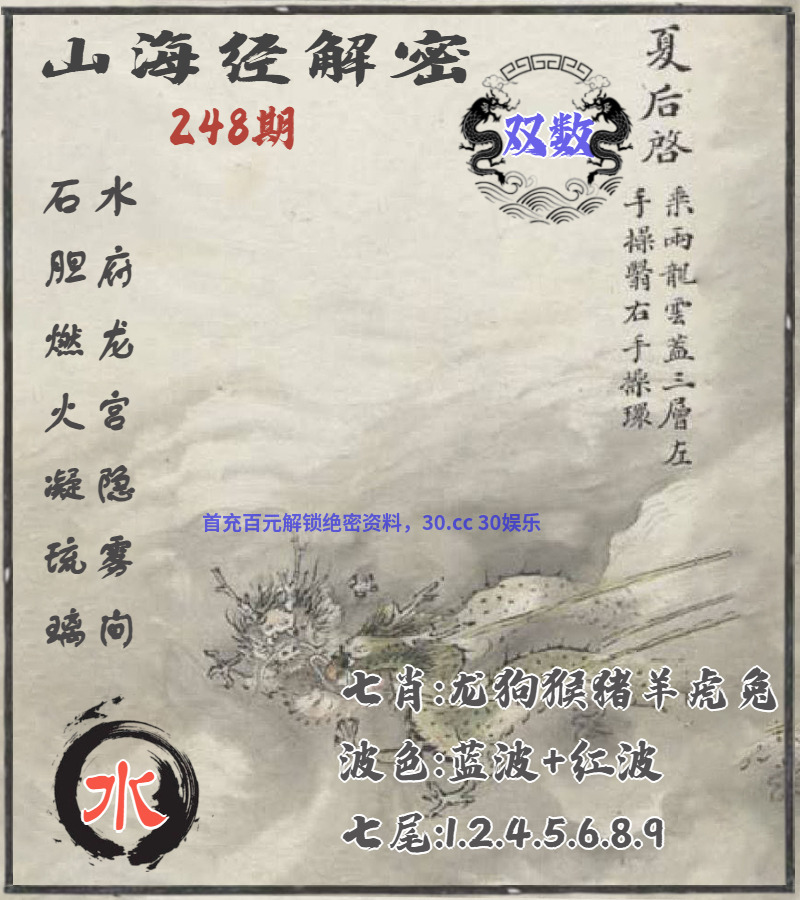 山海经解密
248期
双数
夏后啓
乘兩龍雲蓋三層左
手操翳右手操環
水府龙宫隐雾间
石胆燃火凝琉璃
首充百元解锁绝密资料，30.cc 30娱乐
七肖:龙狗猴猪羊虎兔
波色:蓝波+红波
七尾:1.2.4.5.6.8.9
水